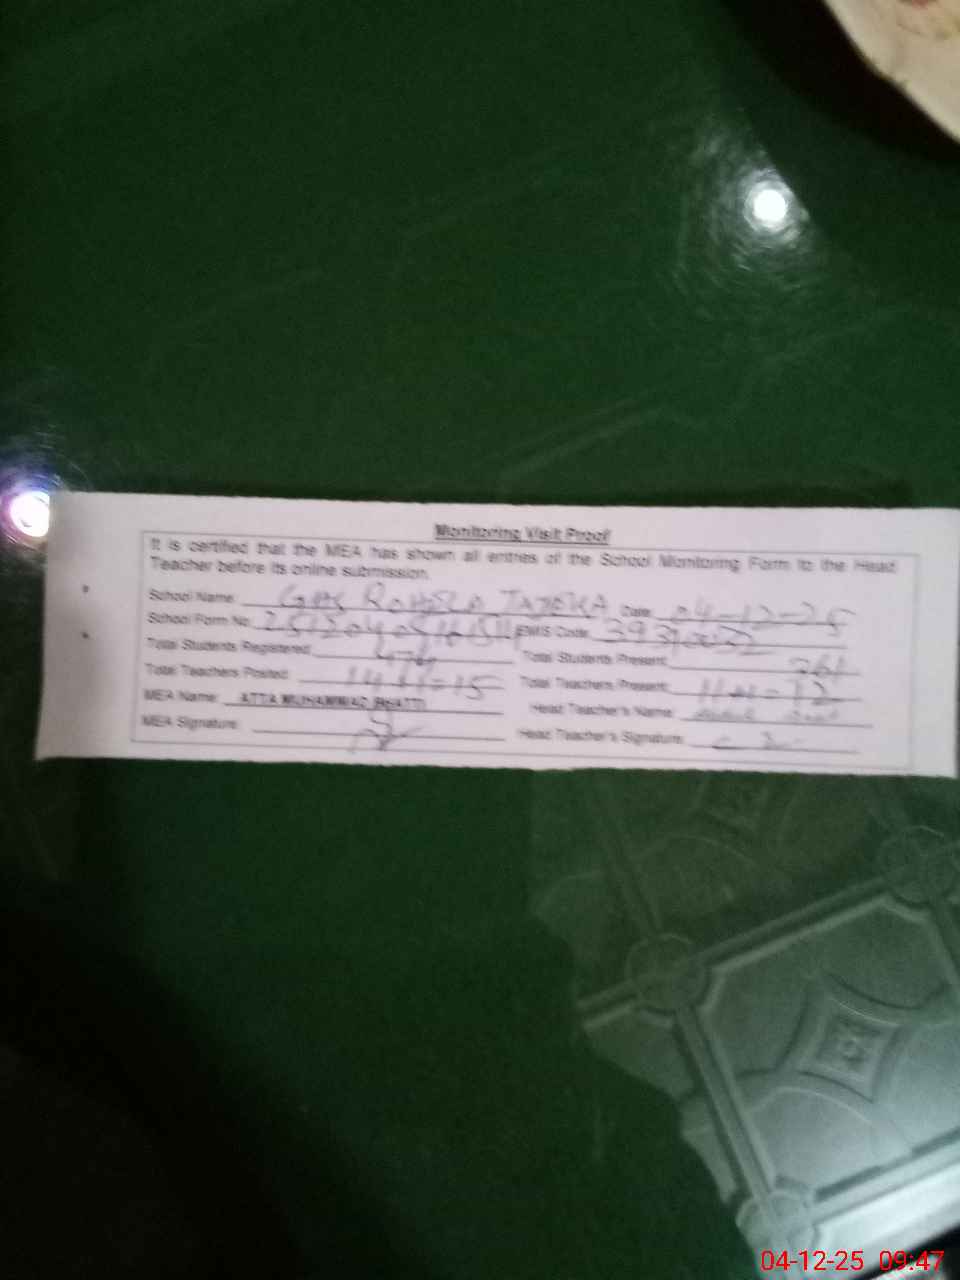 Monitoring Visit Proof
It is certified that the MEA has shown all entries of the School Monitoring Form to the Head
Teacher before its online submission.
School Name: GHS ROHELA TAJEKA Date: 04-12-25
School Form No. EMIS Code: 39310032
Total Students Registered: 474 Total Students Present:
Total Teachers Posted: 14+1=15 Total Teachers Present: 11+1=12
MEA Name: ATTA MUHAMMAD BHATTI Head Teacher's Name:
MEA Signature: Head Teacher's Signature:
04-12-25 09:47